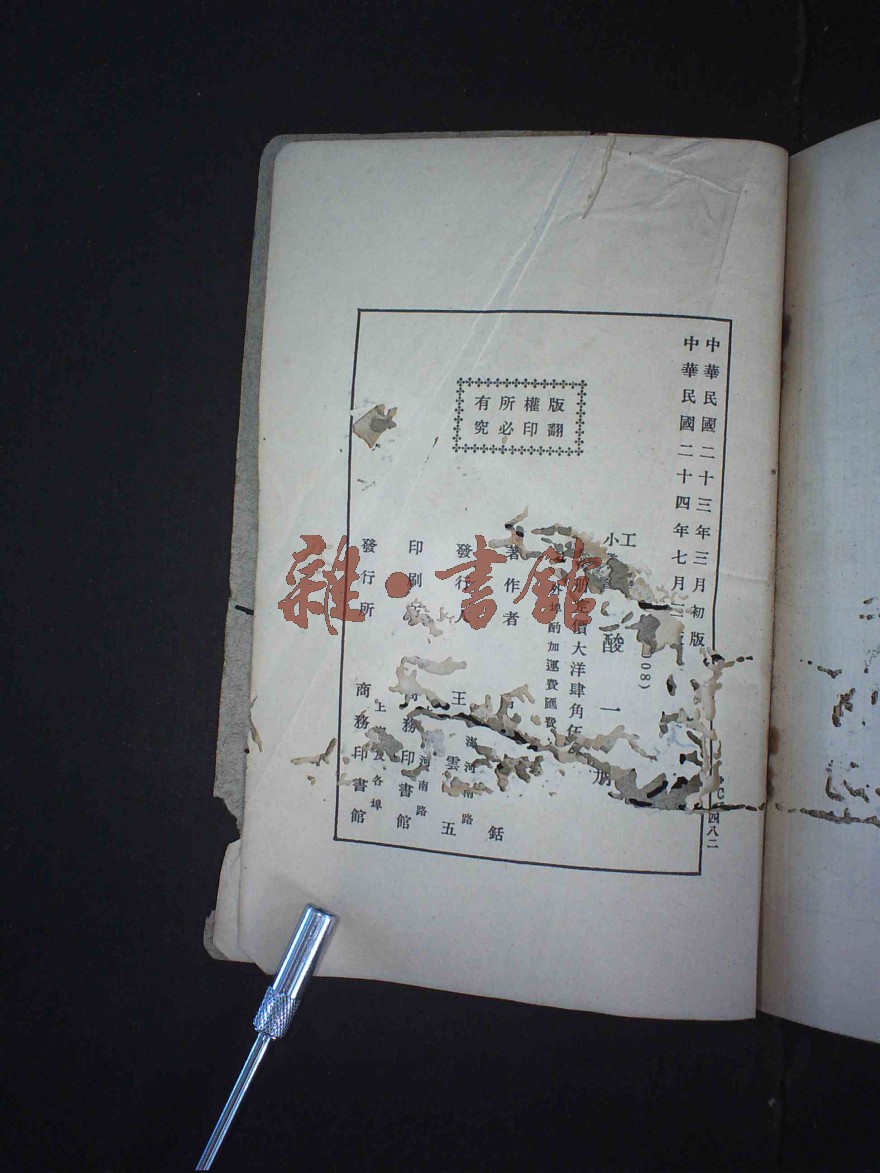 中華民國二十三年三月初版
中華民國二十四年七月
四八二
工
小
酸 一 册
08)
册定價大洋肆角伍
外埠酌加運費匯費
版權所有
翻印必究
著作者
鋯
發行人
王雲五
河南路
印刷
商務印書館
河南路
發行所
商務印書館
上 及各埠
雜·書館